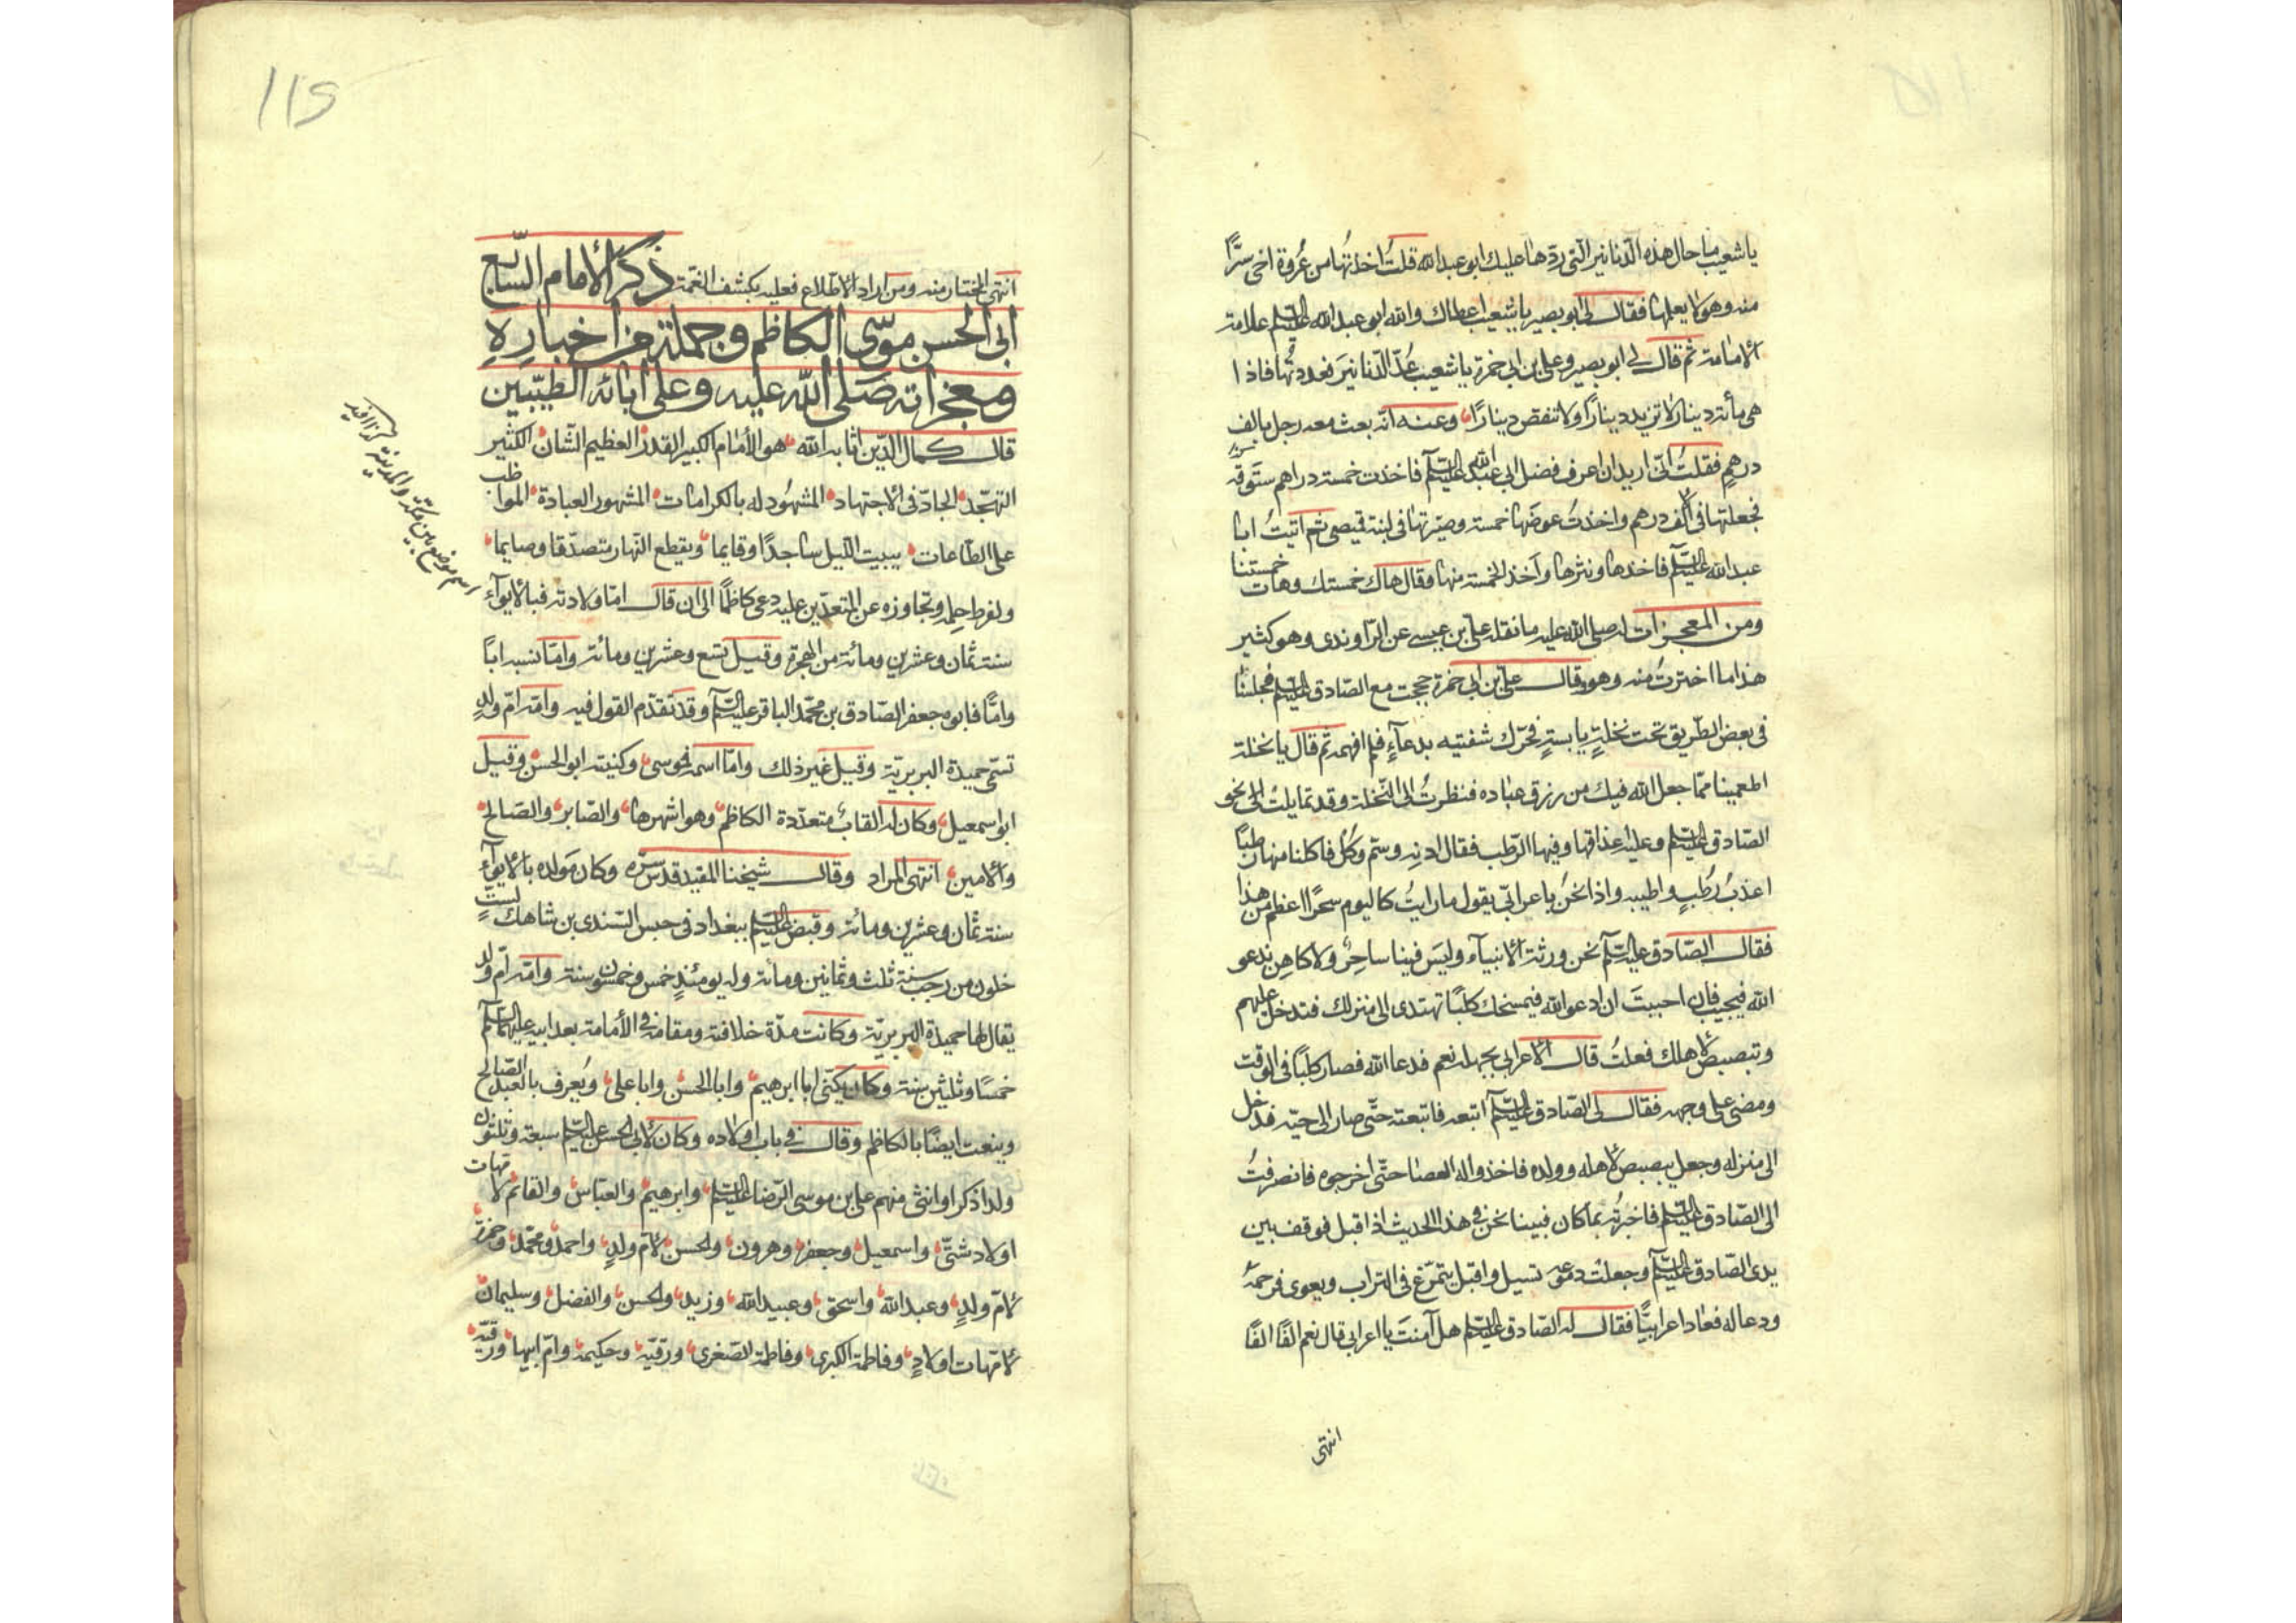 يا شعيب ما حال هذه الدّنانير الّتى ردّها عليك ابو عبد الله قلتُ اخذتُها من عُروة اخى سرًّا
منه وهو لا يعلمها فقال لى ابو بصير يا شعيب اعطاك والله ابو عبد الله عليه السلم علامة
الامامة ثم قال لى ابو بصير وعلى بن ابى حمزة يا شعيب عُدّ الدّنانيَر فعددتُها فاذا
هى مأئة دينار لا تزيد دينارًا ولا تنقص دينارًا، وعنه انّه بعث معه رجل بالف
درهمٍ فقلتُ انّى اريد ان اعرف فضل ابى عبد الله عليه السلم فاخذت خمسة دراهم ستّوقة
فجعلتها فى الالف درهم واخذتُ عوضَها خمسة وصيّرتها فى لبنة قميصى ثم اتيتُ ابا
عبد الله عليه السلم فاخذها ونثرها وآخذ الخمسة منها وقال هاك خمستك وهات خمستنا
ومن المعجزات له صلى الله عليه ما نقله على بن عيسى عن الرّاوندى وهو كثير
هذا ما اخترتُ منه وهو قال على بن ابى حمزة حججت مع الصّادق عليه السلم فجلسنا
فى بعض الطّريق تحت نخلةٍ يابسةٍ فحرّك شفتيه بدعآءٍ فلم افهمه ثم قال يا نخلة
اطعمينا ممّا جعل الله فيك من رزق عباده فنظرتُ الى النّخلة وقد تمايلت الى نحو
الصّادق عليه السلم وعليه عذاقها وفيها الرّطب فقال ادنه وسمّ وكُل فاكلنا منها رطبًا
اعذبُ رُطبٍ واطيبه واذا نحنُ باعرابىّ يقول ما رايتُ كاليوم سحرًا اعظم من هذا
فقال الصّادق عليه السلم نحن ورثة الانبيآء وليَس فينا ساحِرٌ ولا كاهِن ندعو
الله فيجيب فان احببتَ ان ادعو الله فيمسخك كلبًا تهتدى الى منزلك فتدخل عليهم
وتبصبص لاهلك فعلتُ قال الاعرابى بجهله نعم فدعا الله فصار كلبًا فى الوقت
ومضى على وجهه فقال لى الصّادق عليه السلم اتبعه فاتبعته حتّى صار الى حيّه فدخل
الى منزله وجعل يبصبص لاهله وولده فاخذوا له العصا حتّى اخرجوه فانصرفتُ
الى الصّادق عليه السلم فاخبرتُه بما كان فبينا نحن فى هذا الحديث اذ اقبل فوقف بين
يدى الصّادق عليه السلم وجعلت دموعه تسيل واقبل يتمرّغ فى التراب ويعوى فرحمهُ
ودعا له فعاد اعرابيًّا فقال له الصّادق عليه السلم هل آمنتَ يا اعرابى قال نعم الفًا الفًا
انتهى
115
انتهى المختار منه ومن اراد الاطّلاع فعليه بكشف الغمّة ذكر الامام السّابع
ابى الحسن موسى الكاظم وجملة من اخباره
ومعجزاته صلى الله عليه وعلى ابائه الطيّبين
قال كمال الدّين اثابه الله هو الأمام الكبير القدر العظيم الشّان الكثير
التهجّد الجادّ فى الاجتهاد المشهُود له بالكرامات المشهور العبادة المواظب
على الطّاعات يبيت اللّيل ساجدًا وقايما ويقطع النّهار متصدّقا وصايما
ولفرط حِلمه وتجاوزه عن المتعدّين عليه دعى كاظمًا الى ان قال امّا ولادته فبالابوآء
سنة ثمان وعشرين ومائة من الهجرة وقيل تسع وعشرين ومائة وامّا نسبه ابًا
وامًّا فابوه جعفر الصّادق بن محمّد الباقر عليه السلم وقد تقدّم القول فيه وامّه امّ ولدٍ
تسمّى حميدة البربريّة وقيل غير ذلك وامّا اسمه فموسى وكنيته ابو الحسن وقيل
ابو اسمعيل وكان له القابٌ متعدّدة الكاظم وهو اشهرها والصّابر والصّالح
والامين انتهى المراد وقال شيخنا المفيد قدس سرّه وكان مَولده بالابوآء
سنة ثمان وعشرين ومائة وقبض عليه السلم ببغداد فى حبس السّندى بن شاهك لستٍّ
خلون من رجب سنة ثلث وثمانين ومائة وله يومئذٍ خمس وخمسون سنة وامّه امّ ولد
يقال لها حميدة البربريّة وكانت مدّة خلافته ومقامه فى الأمامة بعد ابيه عليهما السلم
خمسًا وثلثين سنة وكان يكنّى ابا ابرهيم وابا الحسن وابا على ويُعرف بالعبد الصّالح
وينعت ايضًا بالكاظم وقال فى باب اولاده وكان لابى الحسن عليه السلم سبعة وثلثون
ولدا ذكرا وانثى منهم على بن موسى الرّضا عليه السلم وابرهيم والعبّاس والقاسم لامّهات
اولاد شتّى واسمعيل وجعفر وهرون والحسن لامّ ولدٍ واحمد ومحمّد وحمزة
لامّ ولدٍ وعبد الله واسحق وعبيد الله وزيد والحسن والفضل وسليمان
لامّهات اولادٍ وفاطمة الكبرى وفاطمة الصّغرى ورقيّة وحكيمة وامّ ابيها ورقيّة
اسم موضع بين مكة والمدينة